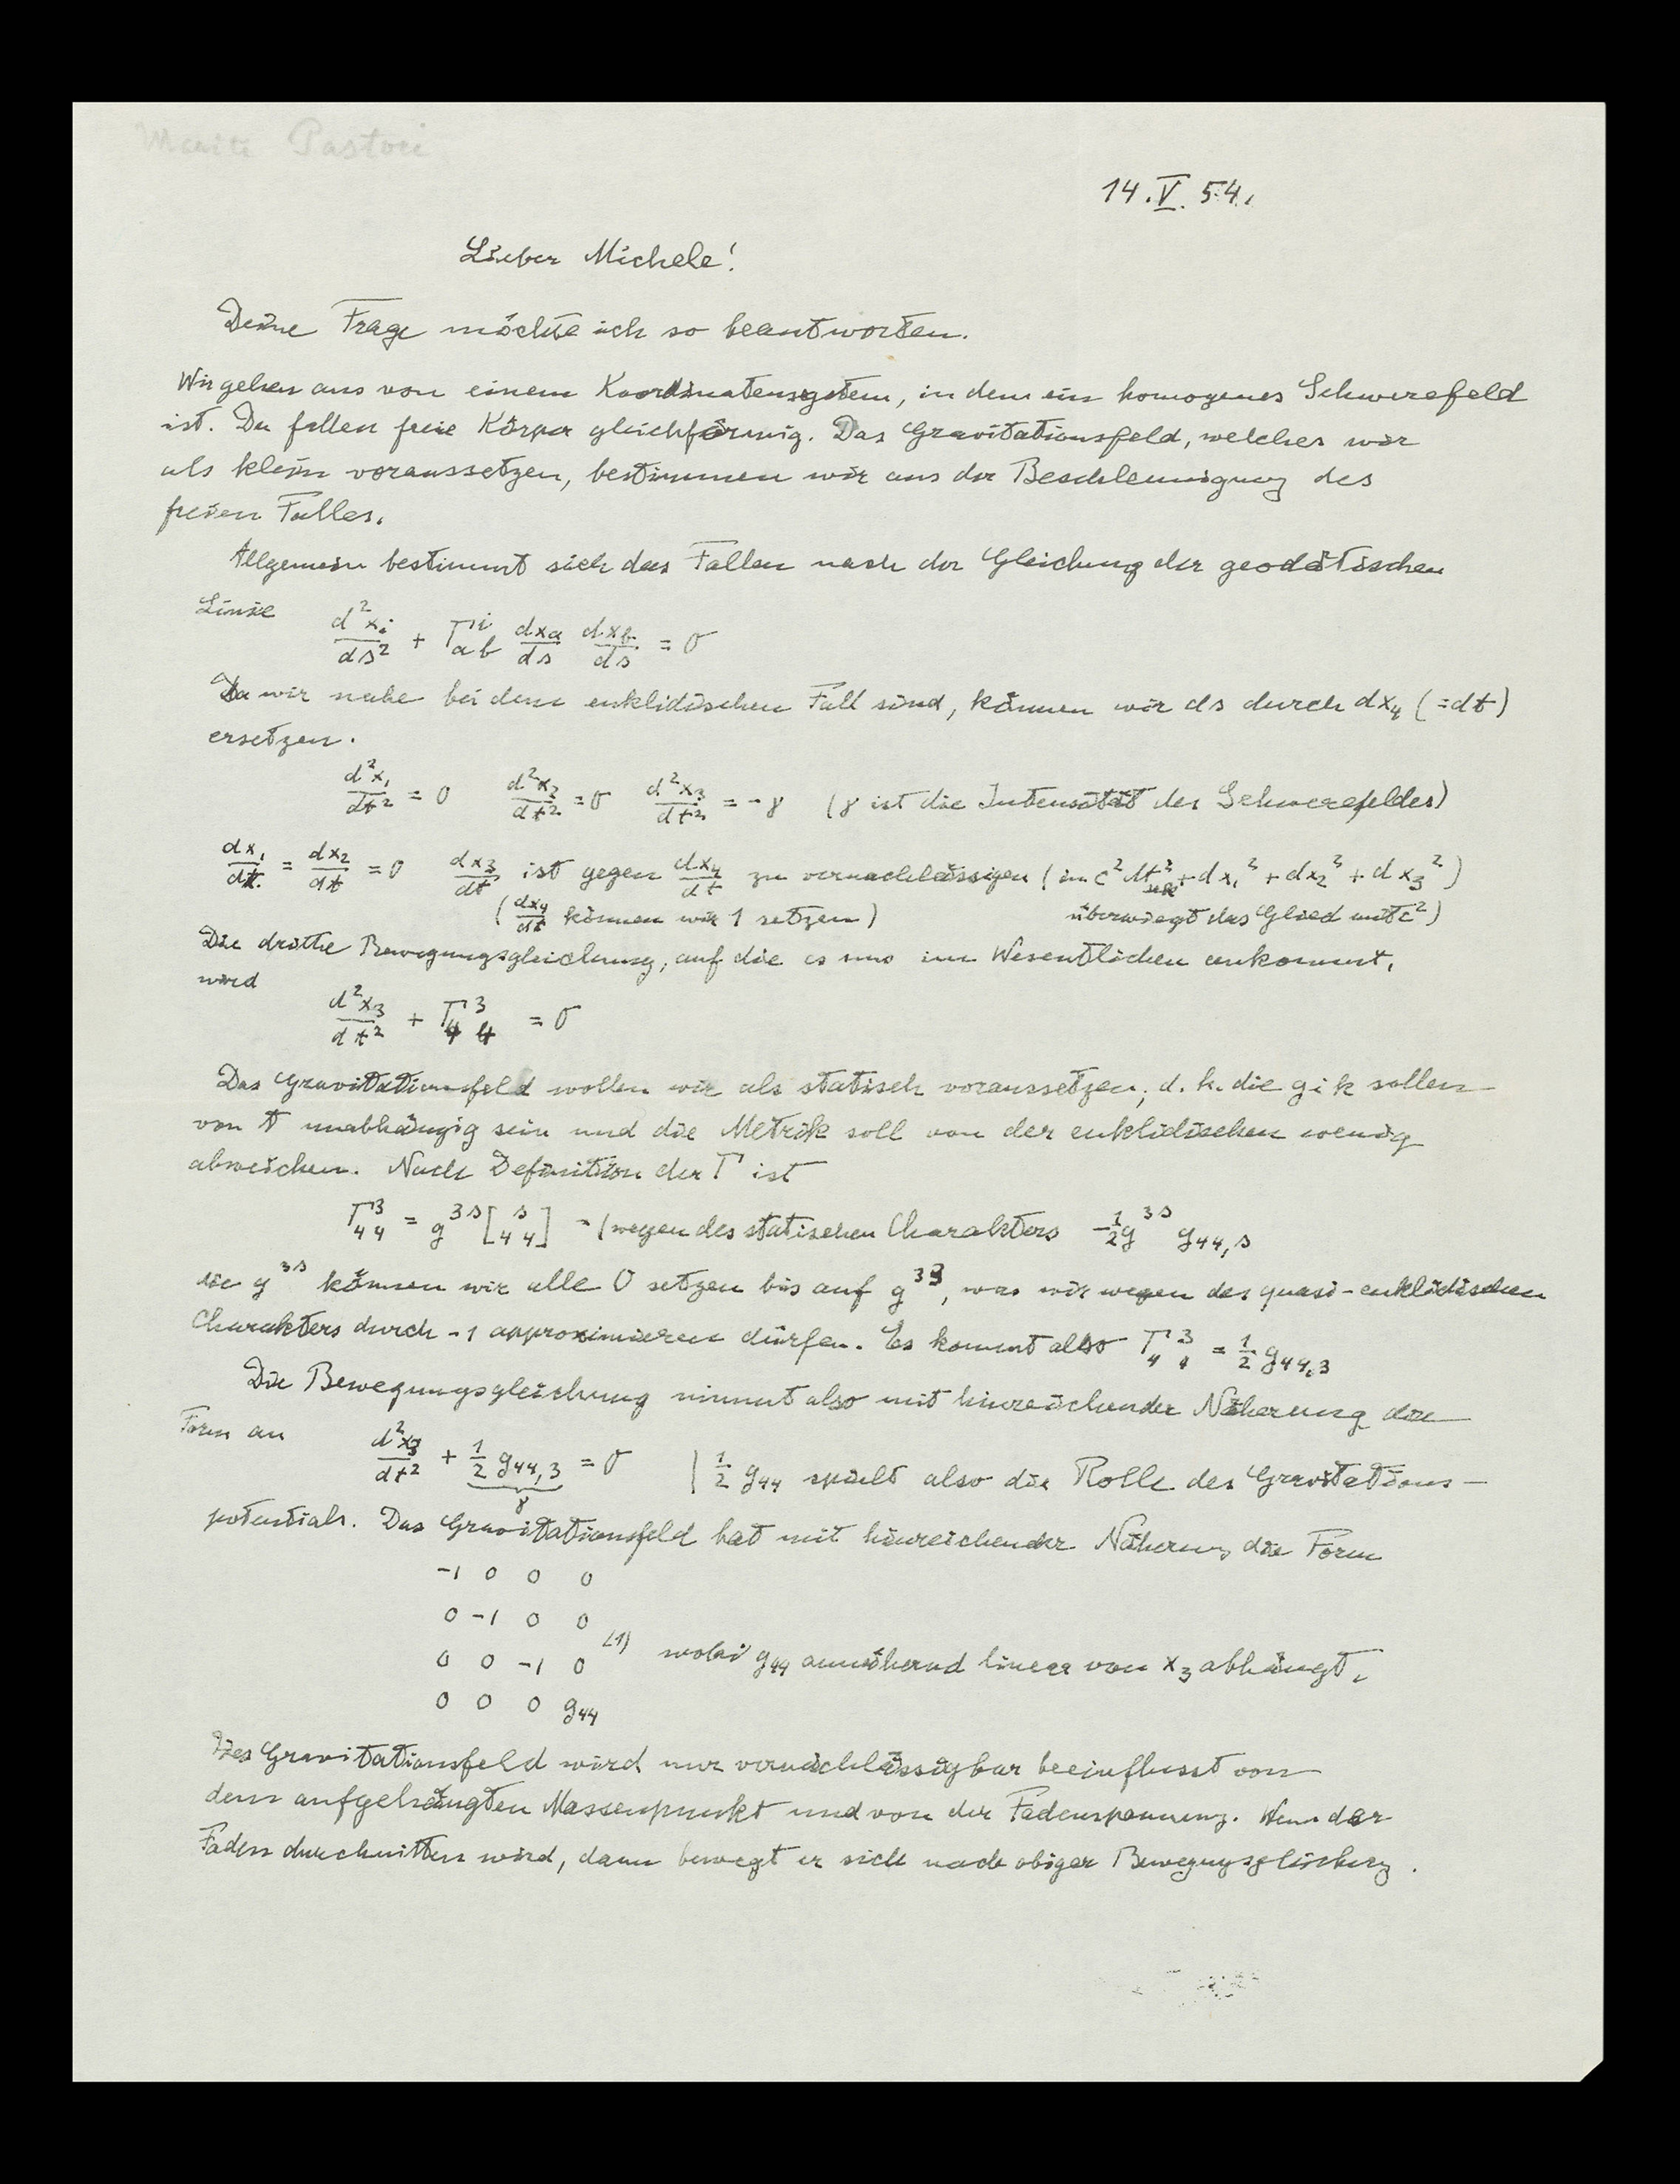 Pastori
14.V.54.
Lieber Michele!
Deine Frage möchte ich so beantworten.
Wir gehen aus von einem Koordinatensystem, in dem ein homogenes Schwerefeld
ist. Da fallen freie Körper gleichförmig. Das Gravitationsfeld, welches wir
als klein voraussetzen, bestimmen wir aus der Beschleunigung des
freien Falles.
Allgemein bestimmt sich das Fallen nach der Gleichung der geodätischen
Linie d²xᵢ/ds² + Γⁱ_ab dx_a/ds dx_b/ds = 0
Da wir nahe bei dem euklidischen Fall sind, können wir ds durch dx₄ (=dt)
ersetzen.
d²x₁/dt² = 0 d²x₂/dt² = 0 d²x₃/dt² = -γ (γ ist die Intensität des Schwerefeldes)
dx₁/dt = dx₂/dt = 0 dx₃/dt ist gegen dx₄/dt zu vernachlässigen (in c² dt² + dx₁² + dx₂² + dx₃²)
(dx₄/dt können wir 1 setzen) überwiegt das Glied mit c²)
Die dritte Bewegungsgleichung, auf die es uns im Wesentlichen ankommt,
wird d²x₃/dt² + Γ³₄₄ = 0
Das Gravitationsfeld wollen wir als statisch voraussetzen, d. h. die gik sollen
von t unabhängig sein und die Metrik soll von der euklidischen wenig
abweichen. Nach Definition der Γ ist
Γ³₄₄ = g³ˢ[ˢ₄₄] = (wegen des statischen Charakters -½g³ˢ g₄₄,ₛ
die g³ˢ können wir alle 0 setzen bis auf g³³, was wir wegen des quasi-euklidischen
Charakters durch -1 approximieren dürfen. Es kommt also Γ³₄₄ = ½ g₄₄,₃
Die Bewegungsgleichung nimmt also mit hinreichender Näherung die
Form an d²x₃/dt² + ½ g₄₄,₃ = 0 | ½ g₄₄ spielt also die Rolle des Gravitations-
γ
potentials. Das Gravitationsfeld hat mit hinreichender Näherung die Form
-1 0 0 0
0 -1 0 0
0 0 -1 0 (1) wobei g₄₄ annähernd linear von x₃ abhängt.
0 0 0 g₄₄
Dies Gravitationsfeld wird nur vernachlässigbar beeinflusst von
dem aufgehängten Massenpunkt und von der Fadenspannung. Wenn der
Faden durchnitten wird, dann bewegt er sich nach obiger Bewegungsgleichung.